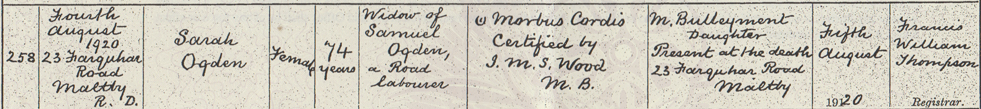 258
Fourth
August
1920
23 Farquhar
Road
Maltby
R. D.
Sarah
Ogden
Female
74
years
Widow of
Samuel
Ogden,
a Road
labourer
Morbus Cordis
Certified by
I. M. S. Wood
M. B.
M. Bulleyment
Daughter
Present at the death
23 Farquhar Road
Maltby
Fifth
August
1920
Francis
William
Thompson
Registrar.